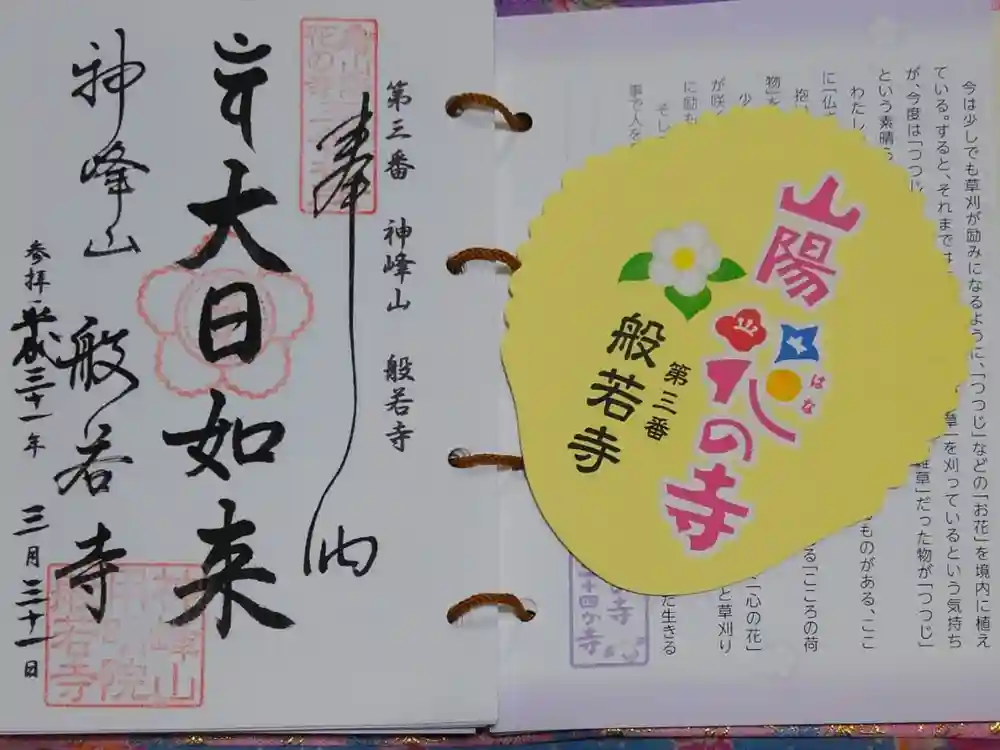 第三番 神峰山 般若寺
奉
納
大日如来
神峰山
般若寺
参拝 平成三十一年 三月三十一日
山陽
花の寺
はな
第三番
般若寺
今は少しでも草刈が励みになるように、「つつじ」などの「お花」を境内に植え
ている。すると、それまでは
「草」を刈っているという気持ち
が、今度は「つつじ
雑草」だった物が「つつじ」
という素晴ら
わたし
ものがある、ここ
に「仏
抱
る「こころの荷
物」を
少し
と草刈り
が咲く
「心の花」
に励も
そして
た生きる
事で人を
十四ヶ寺